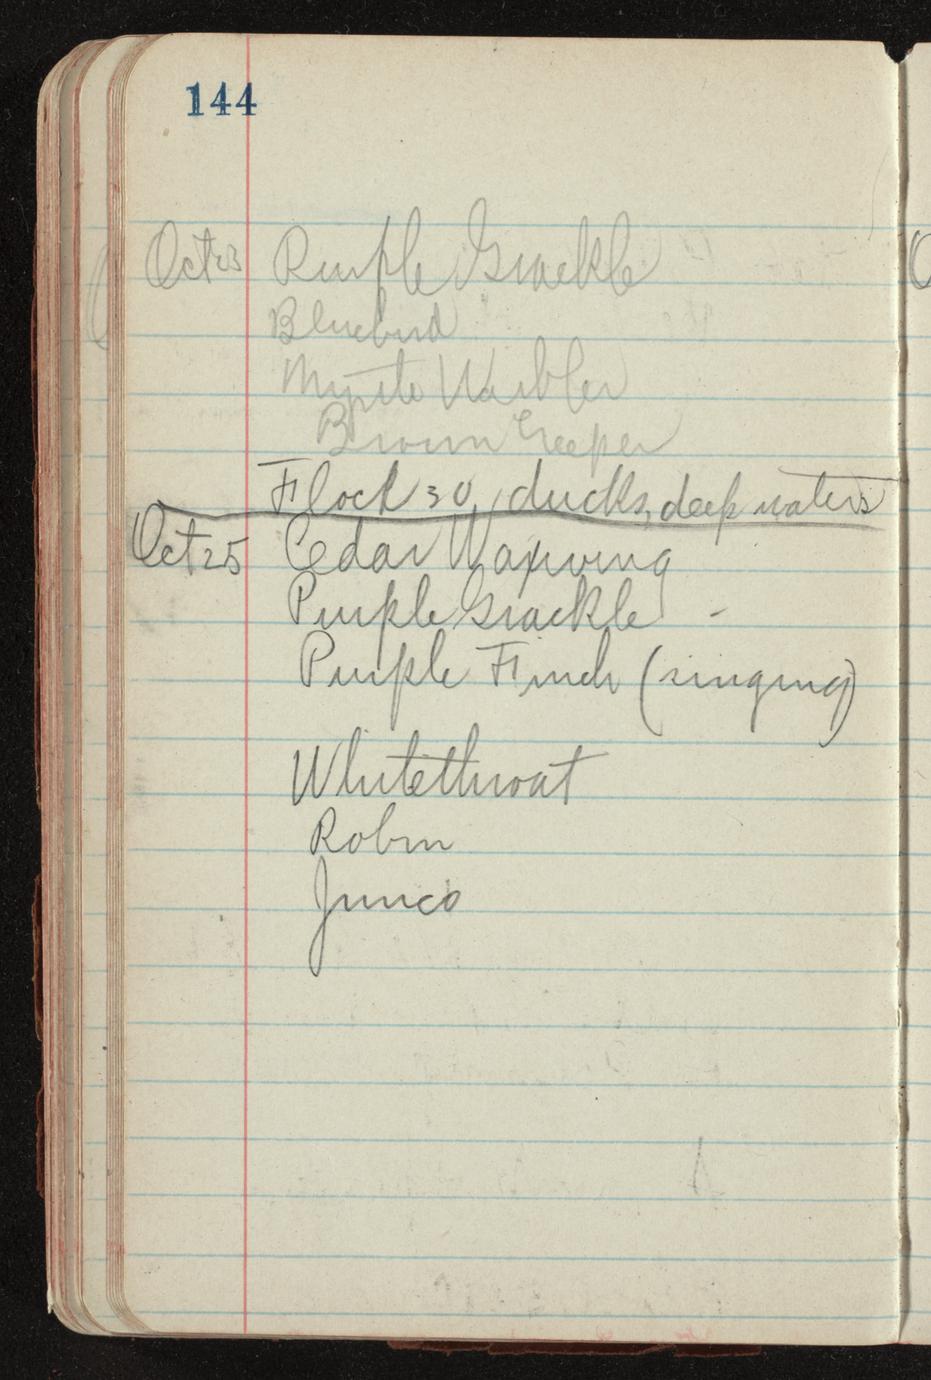 144
Oct 23 Purple Grackle
Bluebird
Myrtle Warbler
Brown Creeper
Flock 30 ducks, deep waters
Oct 25 Cedar Waxwing
Purple Grackle -
Purple Finch (singing)
Whitethroat
Robin
Junco